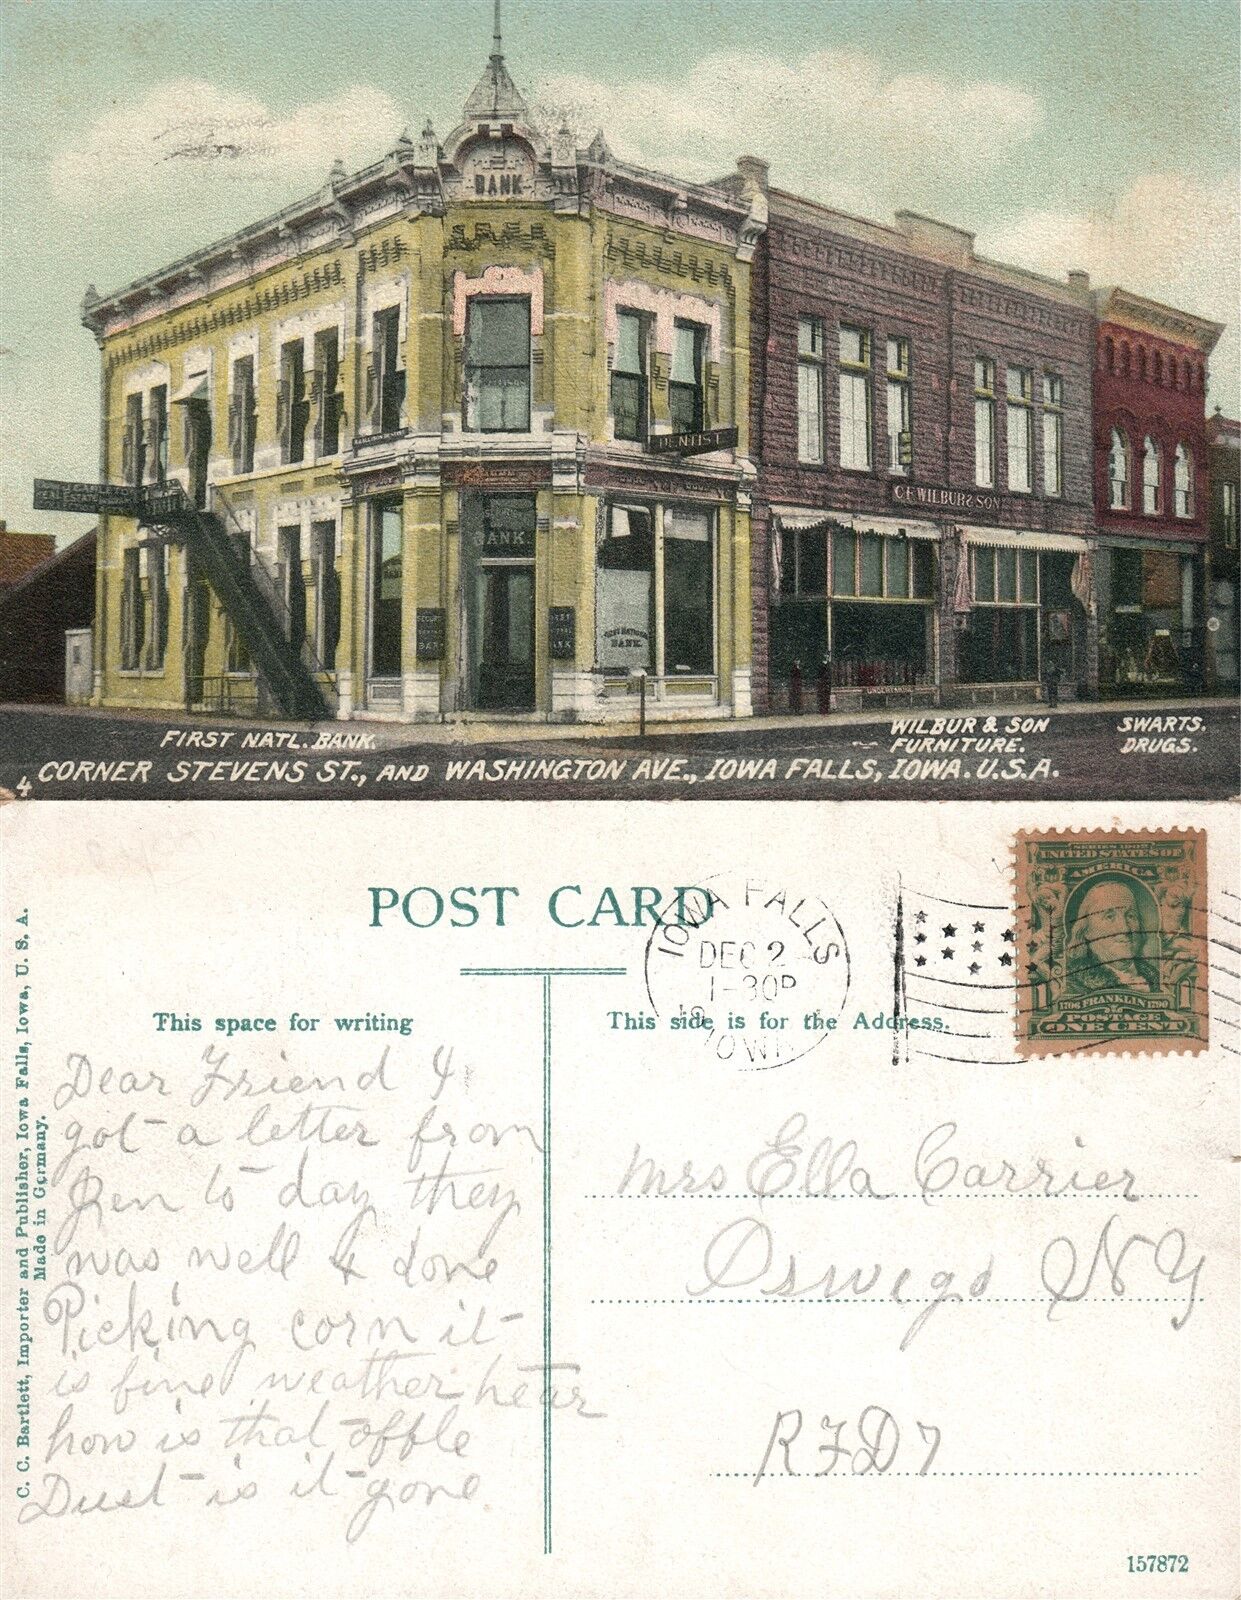 BANK
DENTIST
C.F. WILBUR & SON
BANK
FIRST NATIONAL
BANK.
BANK
BANK
FIRST NATL. BANK.
WILBUR & SON
FURNITURE.
SWARTS.
DRUGS.
4 CORNER STEVENS ST., AND WASHINGTON AVE., IOWA FALLS, IOWA. U.S.A.
POST CARD
IOWA FALLS
DEC 2
1-30P
IOWA
SERIES 1902
UNITED STATES OF
AMERICA
1706 FRANKLIN 1790
POSTAGE
ONE CENT
This space for writing
This side is for the Address.
Dear Friend I
got a letter from
Jen to day they
was well & done
Picking corn it
is fine weather hear
how is that offle
Dust is it gone
Mrs Ella Carrier
Oswego NY
RFD 7
C. C. Bartlett, Importer and Publisher, Iowa Falls, Iowa, U. S. A.
Made in Germany.
157872